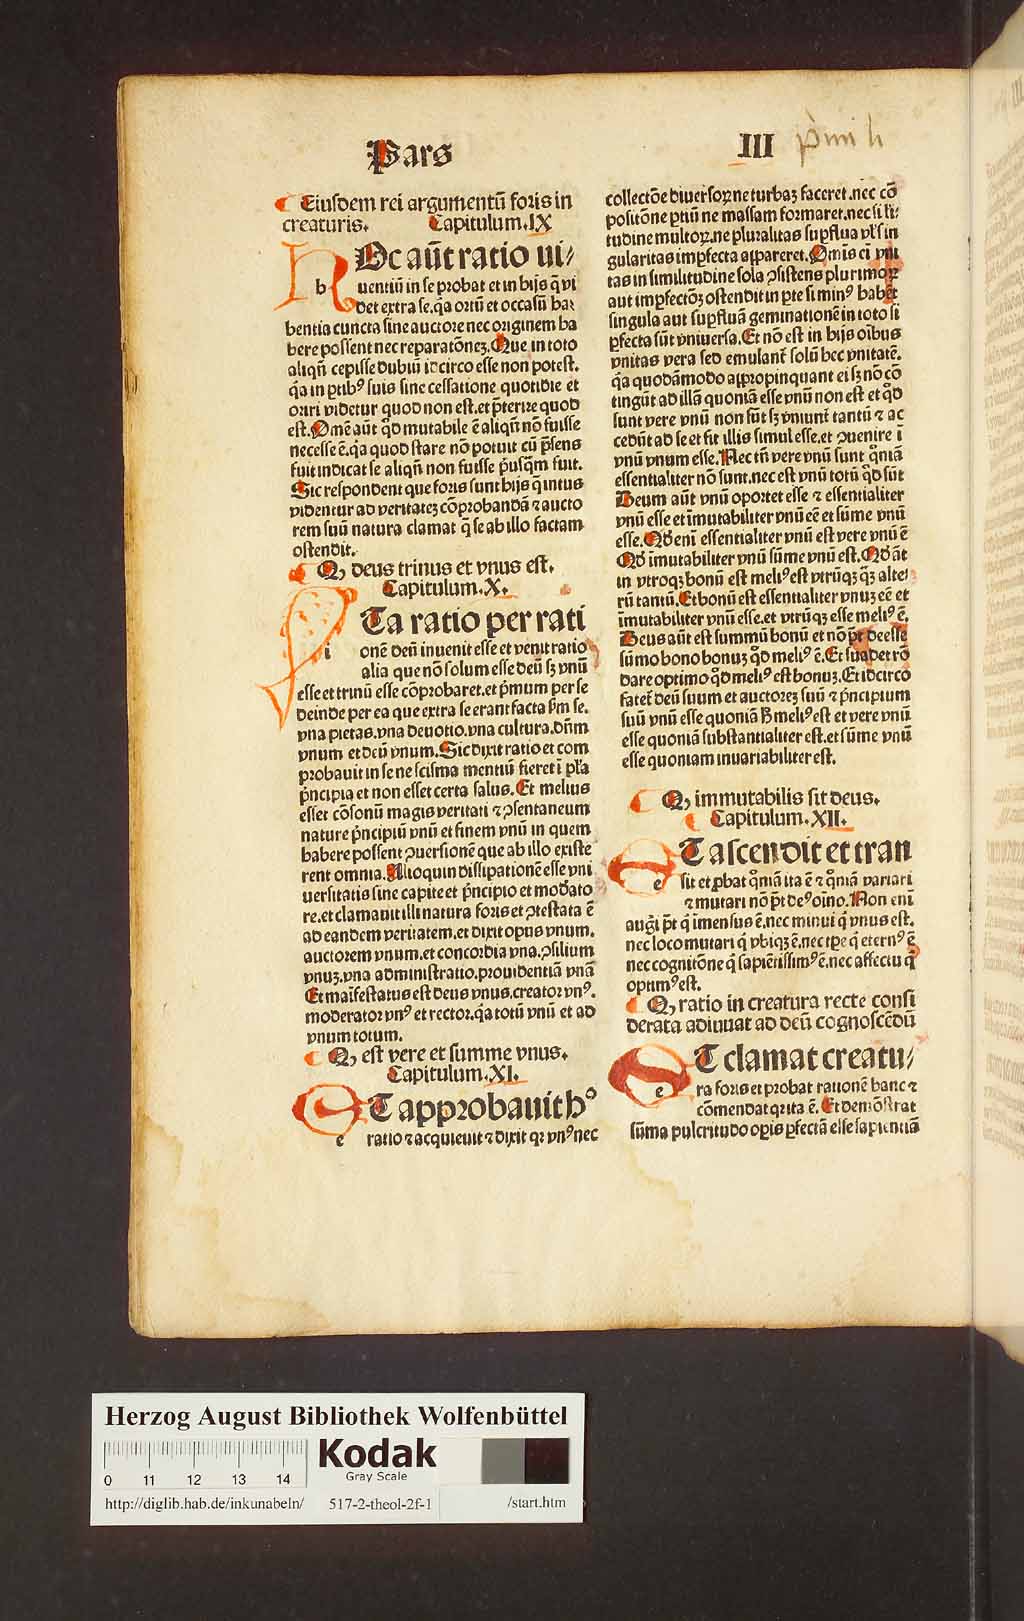 Pars
III
p̃mi li
Eiusdem rei argumentū foris in
creaturis. Capitulum.IX
h Oc aūt ratio ui⸗
uentiū in se probat et in hijs q̄ vi
det extra se.q̄a ortū et occasū ha⸗
bentia cuncta sine auctore nec originem ha
bere possent nec reparatōnez.Que in toto
aliqn̄ cepisse dubiū idcirco esse non potest.
q̄a in ꝑtibꝰ suis sine cessatione quotidie et
oriri videtur quod non est.et p̄terire quod
est.Om̄e aūt qd̄ mutabile ē aliqn̄ nō fuisse
necesse ē.q̄a quod stare nō potuit cū p̄sens
fuit indicat se aliqn̄ non fuisse p̄usq̄m fuit.
Sic respondent que foris sunt hijs q̄ intus
videntur ad veritatez cōprobandā ⁊ aucto
rem suū natura clamat q̄ se ab illo factam
ostendit.
Qꝫ deus trinus et vnus est.
Capitulum.X.
i Ta ratio per rati
onē deū inuenit esse et venit ratio
alia que nō solum esse deū sꝫ vnū
esse et trinū esse cōprobaret.et p̄mum per se
deinde per ea que extra se erant facta ẜm se.
vna pietas.vna deuotio.vna cultura.dn̄m
vnum et deū vnum.Sic dixit ratio et com
probauit in se ne scisma mentiū fieret ī pl̄a
p̄ncipia et non esset certa salus.Et melius
esset cōsonū magis veritati ⁊ ꝯsentaneum
nature p̄ncipiū vnū et finem vnū in quem
habere possent ꝯuersionē que ab illo existe
rent omnia.Alioquin dissipationē esse vni
uersitatis sine capite et p̄ncipio et mod̄ato
re.et clamauit illi natura foris et ꝯtestata ē
ad eandem veritatem.et dixit opus vnum.
auctorem vnum.et concordia vna.ꝯsilium
vnuꝫ.vna administratio.prouidentiā vnā
Et maīfestatus est deus vnus.creator vnꝰ.
moderator vnꝰ et rector.q̄a totū vnū et ad
vnum totum.
Qꝫ est vere et summe vnus.
Capitulum.XI.
e T approbauit hº
ratio ⁊ acquieuit ⁊ dixit qꝛ vnꝰ nec
collectōe diuersoꝝ ne turbaꝫ faceret.nec cō
positōne ꝑtiū ne massam formaret.nec si li⸗
tudine multoꝝ.ne pluralitas suꝑflua vl̓ sin
gularitas imꝑfecta appareret.Om̄is ei vni
tas in similitudine sola ꝯsistens plurimoꝝ
aut imꝑfectōꝫ ostendit in ꝑte si minꝰ habet
singula aut suꝑfluā geminationē in toto si
ꝑfecta sūt vniuersa.Et nō est in hijs oībus
vnitas vera sed emulant̄ solū hec vnitatē.
q̄a quodāmodo appropinquant ei sꝫ nō cō
tingūt ad illā quoniā esse vnū non est et qd̄
sunt vere vnū non sūt sꝫ vniunt̄ tantū ⁊ ac
cedūt ad se et fit illis simul esse.et ꝯuenire ī
vnū vnum esse.Nec tn̄ vere vnū sunt qn̄iā
essentialiter nō sunt.nec est vnū totū qd̄ sūt
Deum aūt vnū oportet esse ⁊ essentialiter
vnū esse et īmutabiliter vnū eē et sūme vnū
esse.Qd̄ enī essentialiter vnū est vere vnū ē
Qd̄ īmutabiliter vnū sūme vnū est.Qd̄ āt
in vtroqꝫ bonū est meliꝰ est vtrūqꝫ qꝫ alte⸗
rū tantū.Et bonū est essentialiter vnuꝫ eē et
īmutabiliter vnū esse.et vtrūqꝫ esse meliꝰ ē.
Deus aūt est summū bonū et nō pt̄ deesse
sūmo bono bonuꝫ qd̄ meliꝰ ē.Et suadet rō
dare optimo qd̄ meliꝰ est bonuꝫ.Et idcirco
fatet̄ deū suum et auctorez suū ⁊ p̄ncipium
suū vnū esse quoniā ħ meliꝰ est et vere vnū
esse quoniā substantialiter est.et sūme vnū
esse quoniam inuariabiliter est.
Qꝫ immutabilis sit deus.
Capitulum.XII.
e T ascendit et tran
sit et ꝓbat qn̄iā ita ē ⁊ qn̄iā variari
⁊ mutari nō pt̄ deꝰ oīno.Non enī
augi pt̄ q̇ īmensus ē.nec minui q̇ vnus est.
nec loco mutari q̇ vbiqꝫ ē.nec tꝑe q̇ eternꝰ ē
nec cognitōne q̇ sapiētissimꝰ ē.nec affectu q̇
optimꝰ est.
Qꝫ ratio in creatura recte consi
derata adiuuat ad deū cognoscēdū
e T clamat creatu⸗
ra foris et probat rationē hanc ⁊
cōmendat qꝛ ita ē.Et demōstrat
sūma pulcritudo oꝑis ꝑfectā esse sapientiā
Herzog August Bibliothek Wolfenbüttel
Kodak
Gray Scale
0 11 12 13 14
http://diglib.hab.de/inkunabeln/ 517-2-theol-2f-1 /start.htm